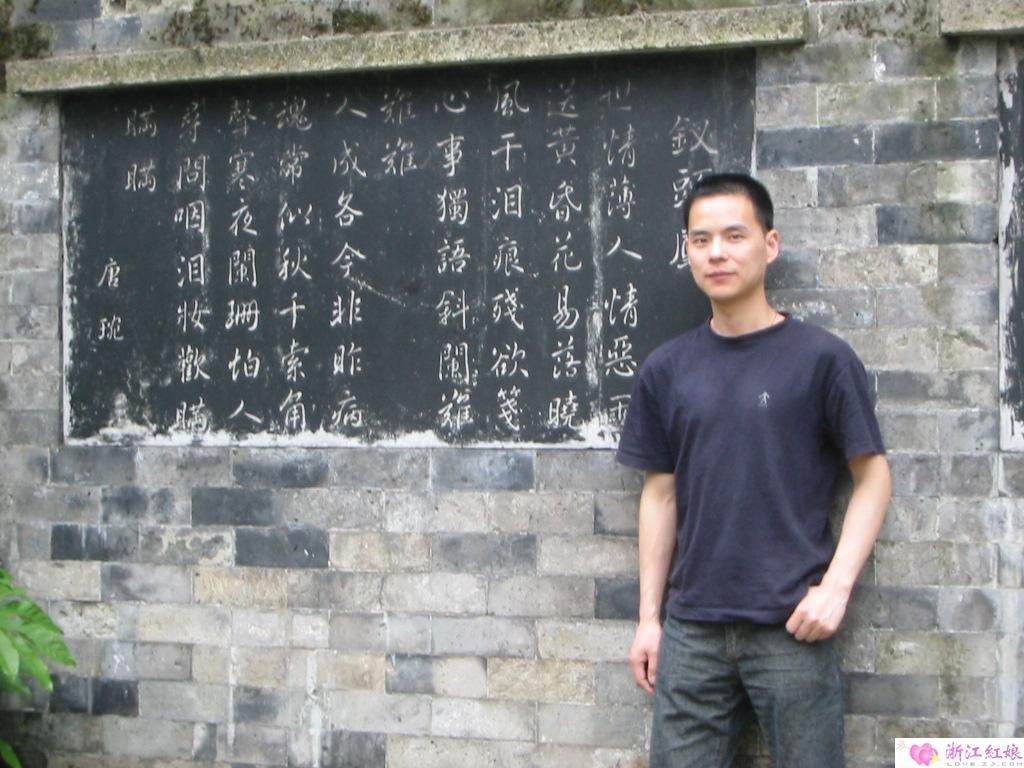 釵頭鳳
世情薄人情惡雨
送黃昏花易落曉
風干泪痕殘欲箋
心事獨語斜闌難
難難
人成各今非昨病
魂常似秋千索角
聲寒夜闌珊怕人
尋問咽泪妝歡瞞
瞞瞞
唐琬
浙江紅娘
LOVE.ZJ.COM